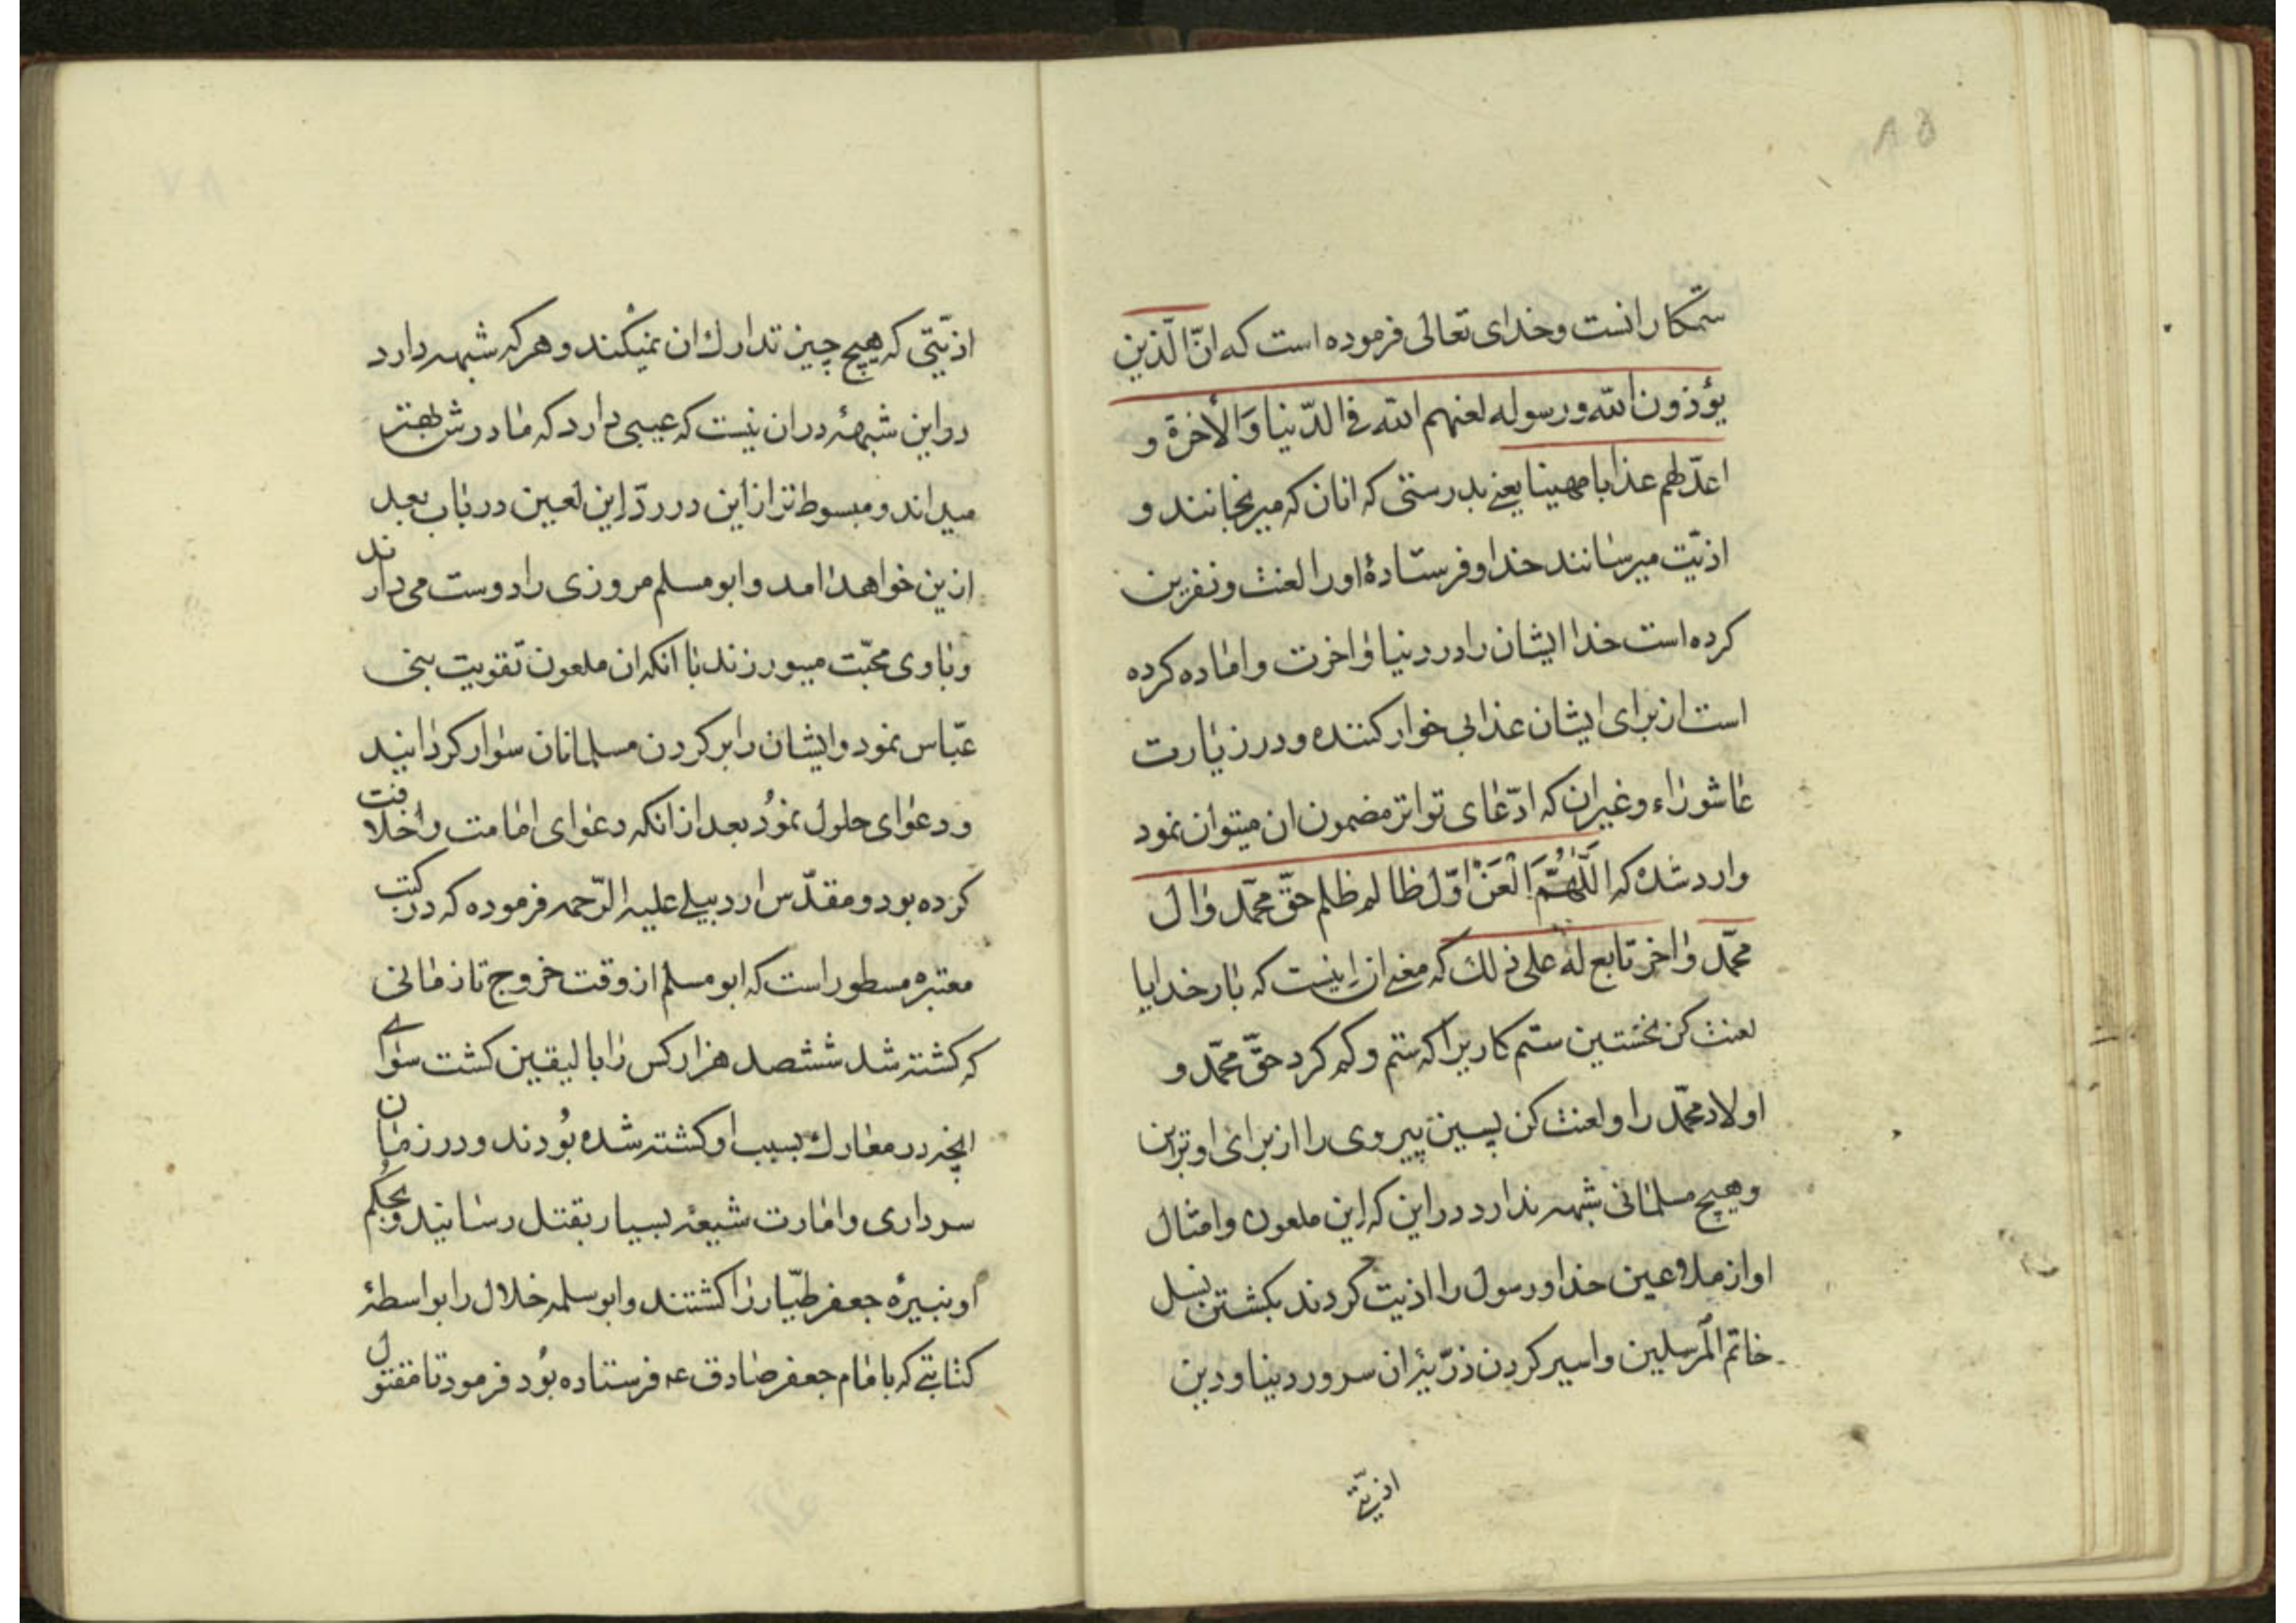 ۸۵
ستمكارانست و خدای تعالی فرموده است که انّ الّذین
یؤذون الله و رسوله لعنهم الله فی الدّنیا وَالْأخرة و
اعدّ لهم عذابا مهینا یعنے بدرستی که انان که میرنجانند و
اذیّت میرسانند خدا و فرستادهٔ او را لعنت و نفرین
کرده است خدا ایشان را در دنیا و اخرت و اماده کرده
است از برای ایشان عذابی خوار کننده و در زیارت
عاشوراء و غیر ان که ادّعای تواتر مضمون ان میتوان نمود
وارد شده که اللّٰهُمَّ الْعَنْ اوّل ظالم ظلم حقّ محمّد وال
محمّد واخر تابع له علی ذلك که معنے ان اینست که بار خدایا
لعنت کن نخستین ستم کاریرا که ستم و کم کرد حقّ محمّد و
اولاد محمّد را و لعنت کن پسین پیروی را از برای او برین
و هیچ مسلمانی شبهه ندارد در این که این ملعون و امثال
او از ملاعین خدا و رسول را اذیت کردند بکشتن نسل
خاتم المرسلین و اسیر کردن ذرّیّۀ ان سرور دنیا و دین
اذیّتی
اذیّتی که هیچ چیز تدارك ان نمیکند و هر که شبهه دارد
در این شبههٔ در ان نیست که عیبی دارد که مادرش بهتر
میداند و مبسوط تر از این در ردّ این لعین در باب بعد
ازین خواهد امد و ابو مسلم مروزی را دوست می دارند
و باوی محبّت میورزند با انکه ان ملعون تقویت بنی
عبّاس نمود و ایشان را بر کردن مسلمانان سوار کردانید
و دعوای حلول نمود بعد از انکه دعوای امامت و خلافت
کرده بود و مقدّس اردبیلے علیه الرّحمه فرموده که در کتب
معتبره مسطور است که ابو مسلم از وقت خروج تا زمانی
که کشته شد ششصد هزار کس را بالیقین کشت سوای
انچه در معارك بسبب او کشته شده بودند و در زمان
سرداری و امارت شیعهٔ بسیار بقتل رسانید و بحکم
او نبیرهٔ جعفر طیّار را کشتند و ابو سلمه خلال را بواسطهٔ
کتابتے که بامام جعفر صادق ع فرستاده بود فرمود تا مقتول